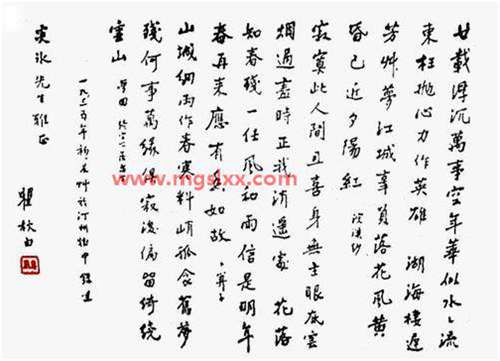 廿載浮沉萬事空年華似水々流
東枉抛心力作英雄 湖海棲遲
芳艸夢江城辜負落花風黃
昏已近夕陽紅 浣溪沙
寂寞此人間且喜身無主眼底雲
烟過盡時正我逍遙處 花落
知春殘一任風和雨信是明年
春再來應有香如故 卜算子
山城細雨作春寒料峭孤衾舊夢
殘何事萬緣俱寂後偏留綺繞
雲山 夢回
一九三五年初夏 於汀州獄中
炎冰先生雅正
瞿秋白
www.mgslxx.com